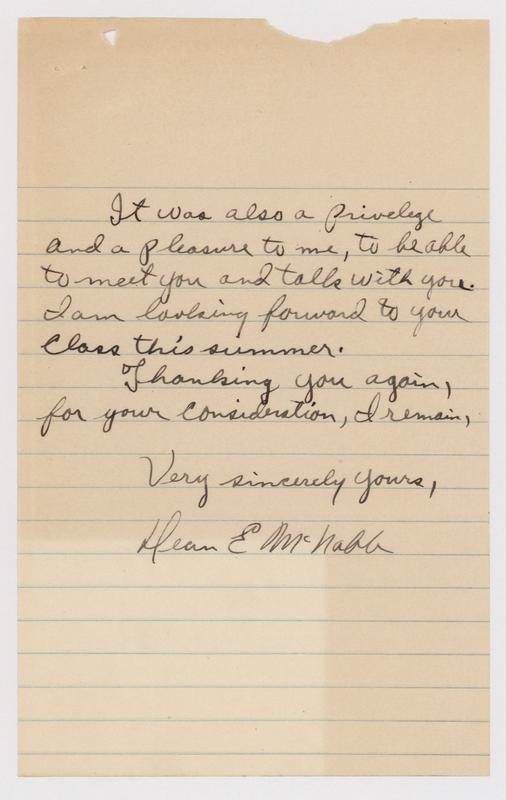 It was also a privelege
and a pleasure to me, to be able
to meet you and talk with you.
I am looking forward to your
class this summer.
Thanking you again,
for your consideration, I remain,
Very sincerely yours,
Dean E McNabb